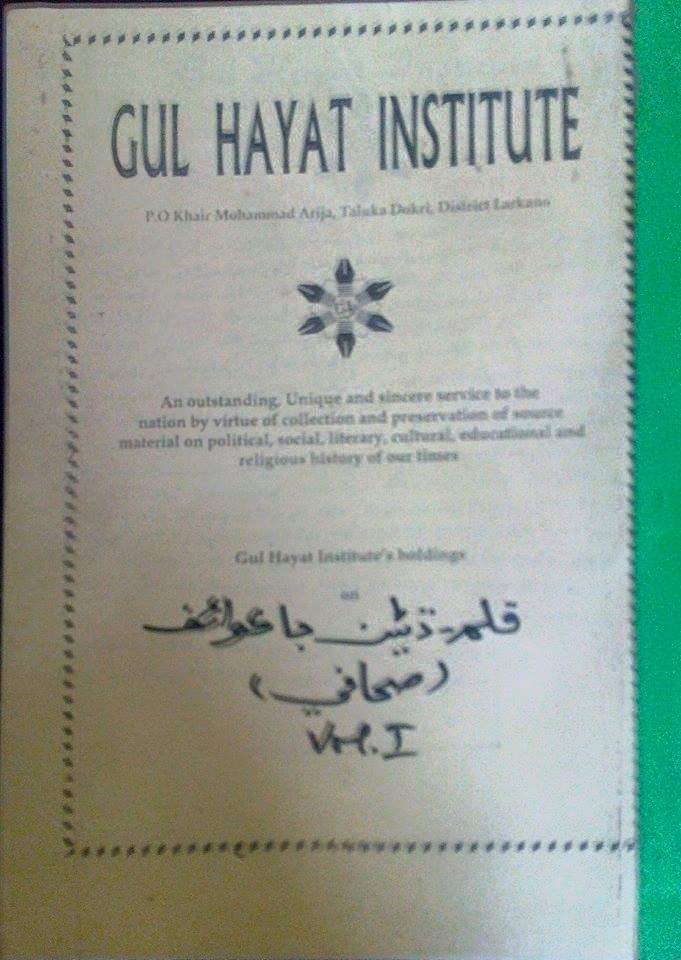 GUL HAYAT INSTITUTE
P.O Khair Mohammad Arija, Taluka Dokri, District Larkano
An outstanding, Unique and sincere service to the
nation by virtue of collection and preservation of source
material on political, social, literary, cultural, educational and
religious history of our times
Gul Hayat Institute's holdings
on
قلم-ڌڻين جا ڪوائف
(صحافي)
Vol. I